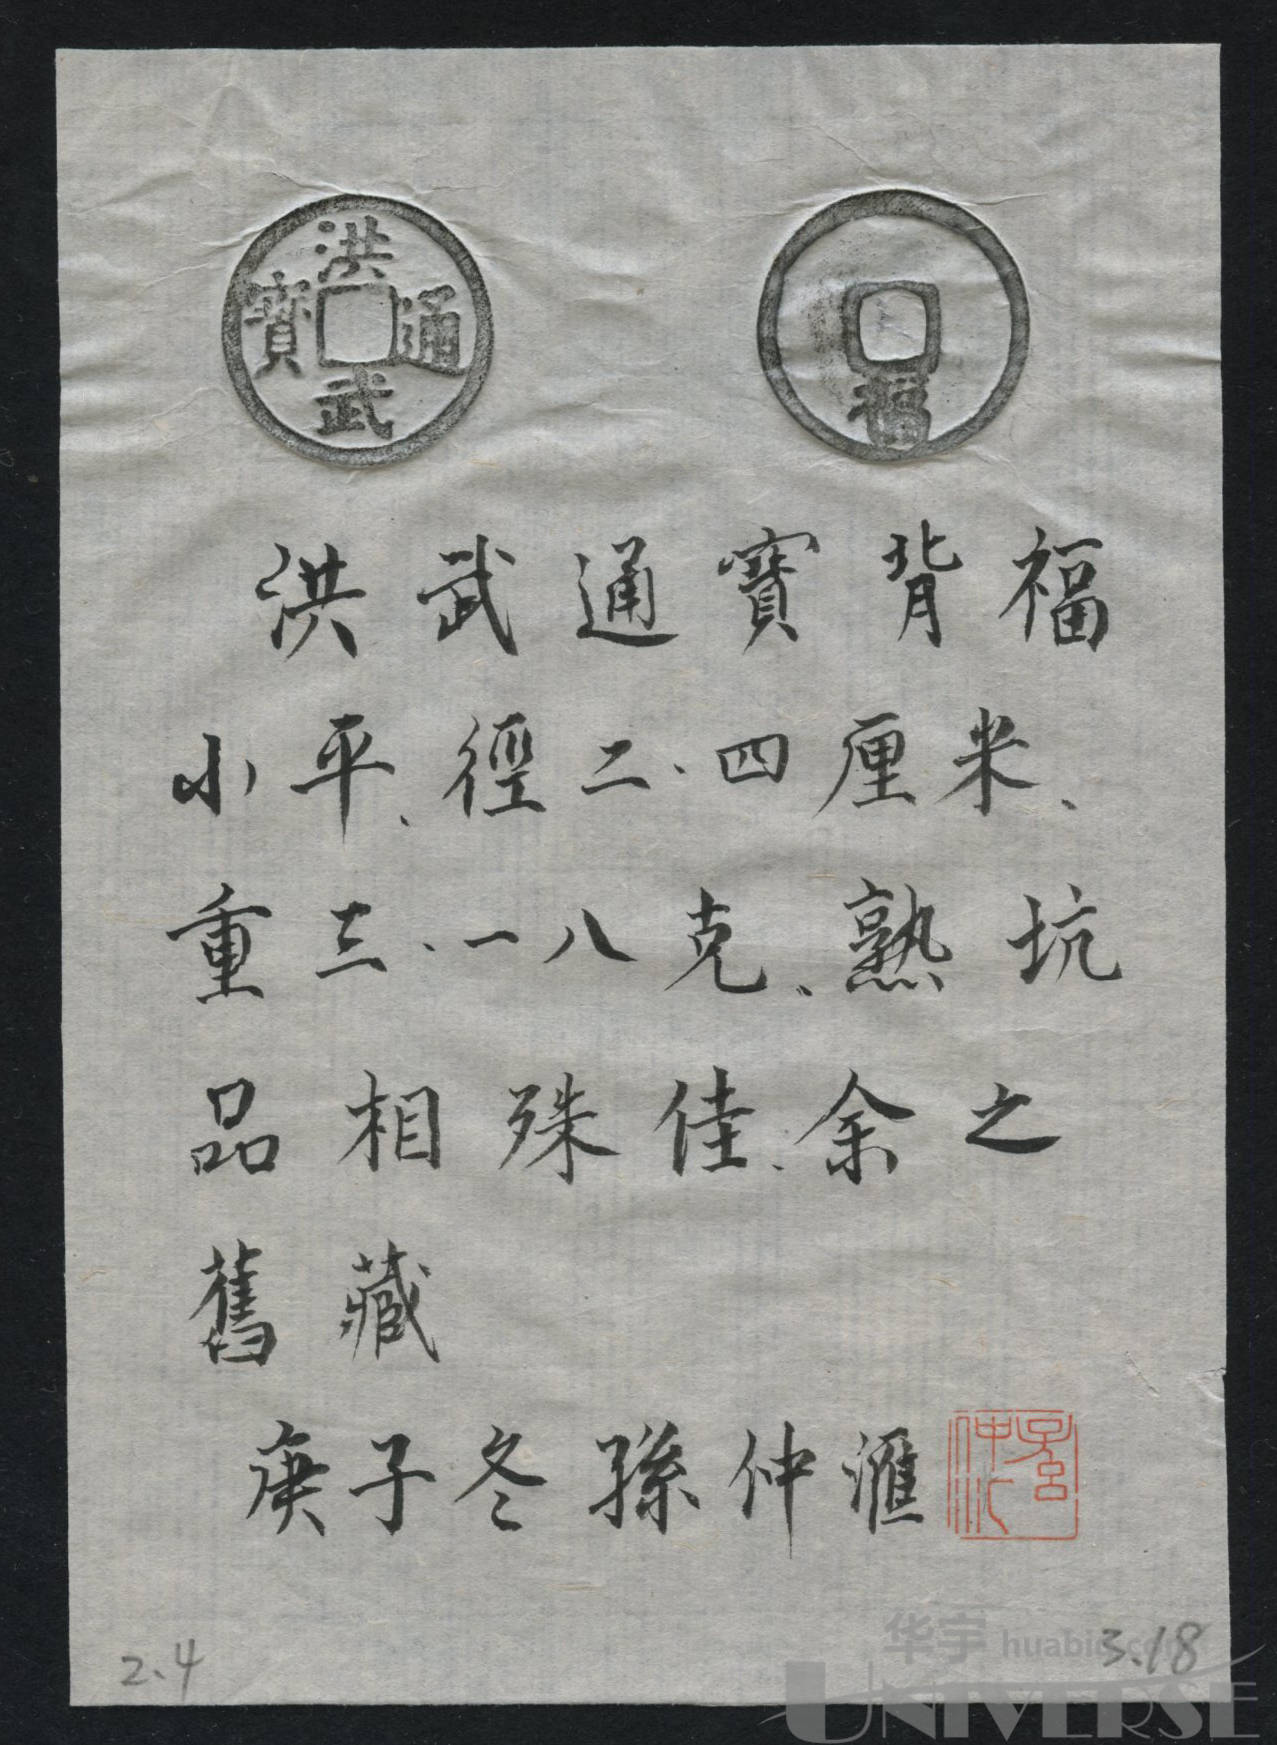 洪武通寶
福
洪武通寶背福
小平、徑二.四厘米、
重三.一八克、熟坑
品相殊佳、余之
舊藏
庚子冬孫仲滙
2.4
3.18
华宇 huabid.com
UNIVERSE